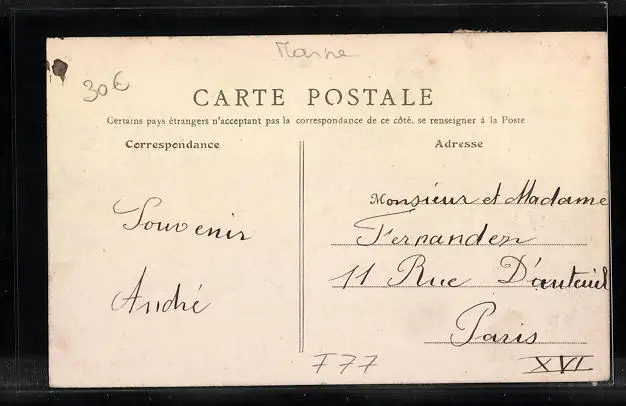 Marne
30€
CARTE POSTALE
Certains pays étrangers n'acceptant pas la correspondance de ce côté, se renseigner à la Poste
Correspondance
Adresse
Souvenir
André
Monsieur et Madame
Fernandez
11 Rue D'auteuil
Paris
XVI
F77